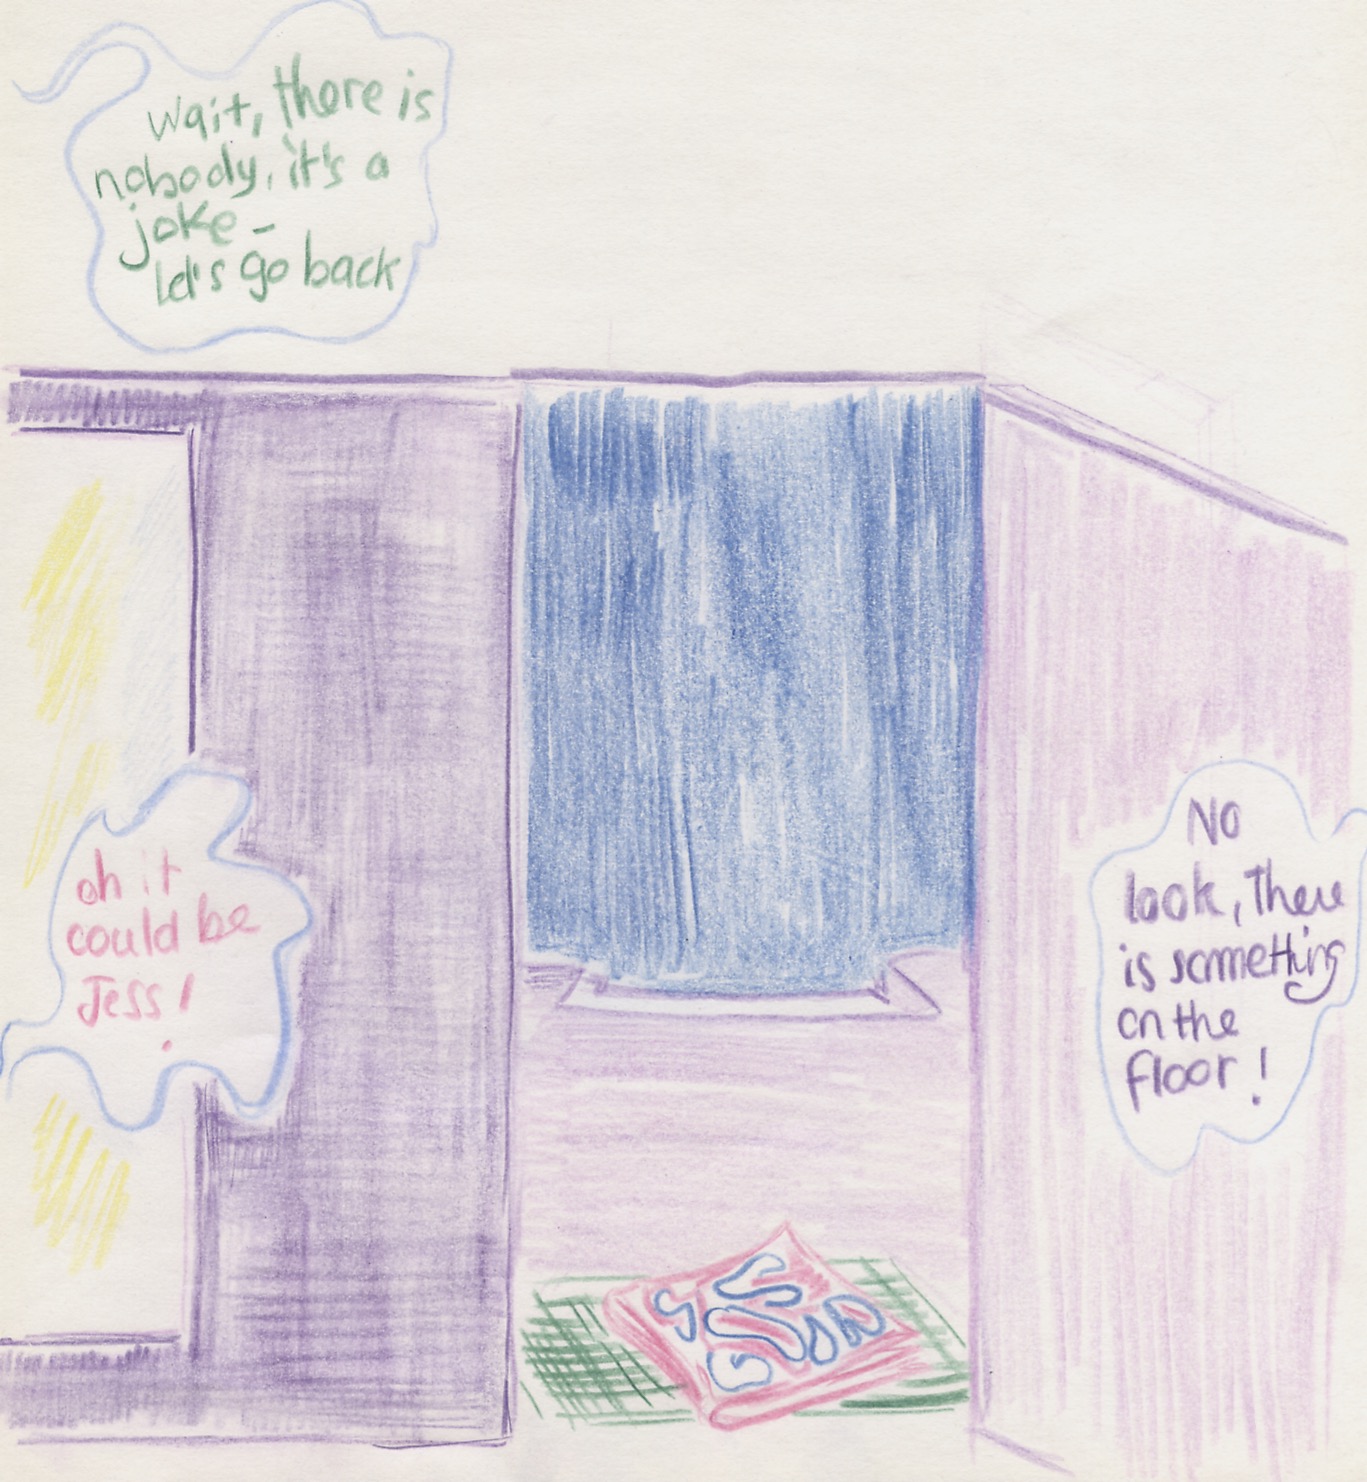 Wait, there is
nobody, it's a
joke -
let's go back
oh it
could be
Jess!
No
look, There
is something
on the
floor!